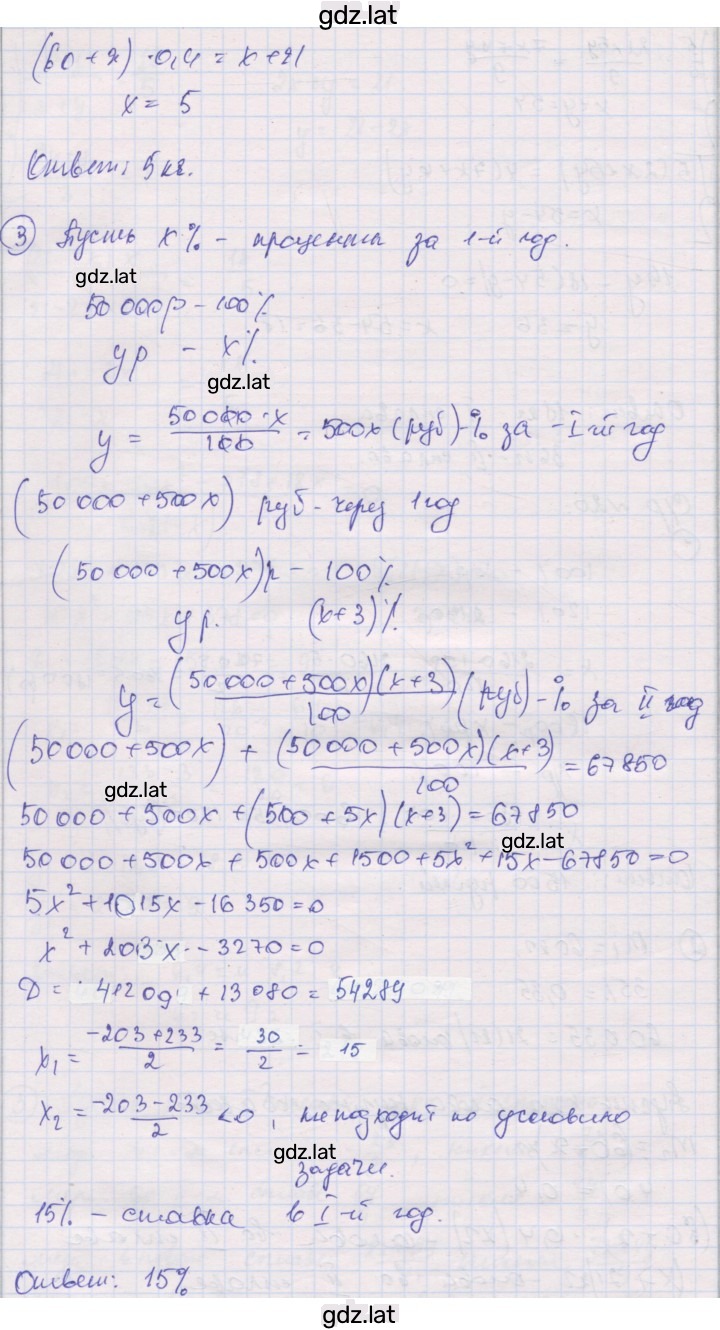 gdz.lat
(60 + x) · 0,4 = x + 21
x = 5
Ответ: 5 кг.
3 Пусть x % - проценты за 1-й год.
gdz.lat
50 000р - 100%
yр - x%
gdz.lat
y = 50 000 · x / 100 = 500x (руб) - % за I-й год
(50 000 + 500x) руб - через 1 год
(50 000 + 500x)р - 100%
yр. (x+3)%
y = (50 000 + 500x)(x+3) / 100 (руб) - % за II год
(50 000 + 500x) + (50 000 + 500x)(x+3) / 100 = 67850
gdz.lat
50 000 + 500x + (500 + 5x)(x+3) = 67850
gdz.lat
50 000 + 500x + 500x + 1500 + 5x² + 15x - 67850 = 0
5x² + 1015x - 16 350 = 0
x² + 203x - 3270 = 0
D = 41209 + 13 080 = 54289
x₁ = -203 + 233 / 2 = 30 / 2 = 15
x₂ = -203 - 233 / 2 < 0, не подходит по условию
gdz.lat
задачи.
15% - ставка в I-й год.
Ответ: 15%
gdz.lat